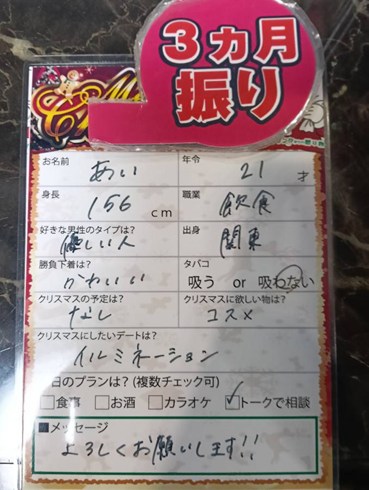 3ヵ月
振り
お名前 あい 年令 21 才
身長 156 cm 職業 飲食
好きな男性のタイプは? 優しい人 出身 関東
勝負下着は? かわいい タバコ 吸う or 吸わない
クリスマスの予定は? なし クリスマスに欲しい物は? コスメ
クリスマスにしたいデートは?
イルミネーション
日のプランは?(複数チェック可)
□食事 □お酒 □カラオケ ☑トークで相談
■メッセージ
よろしくお願いします!!